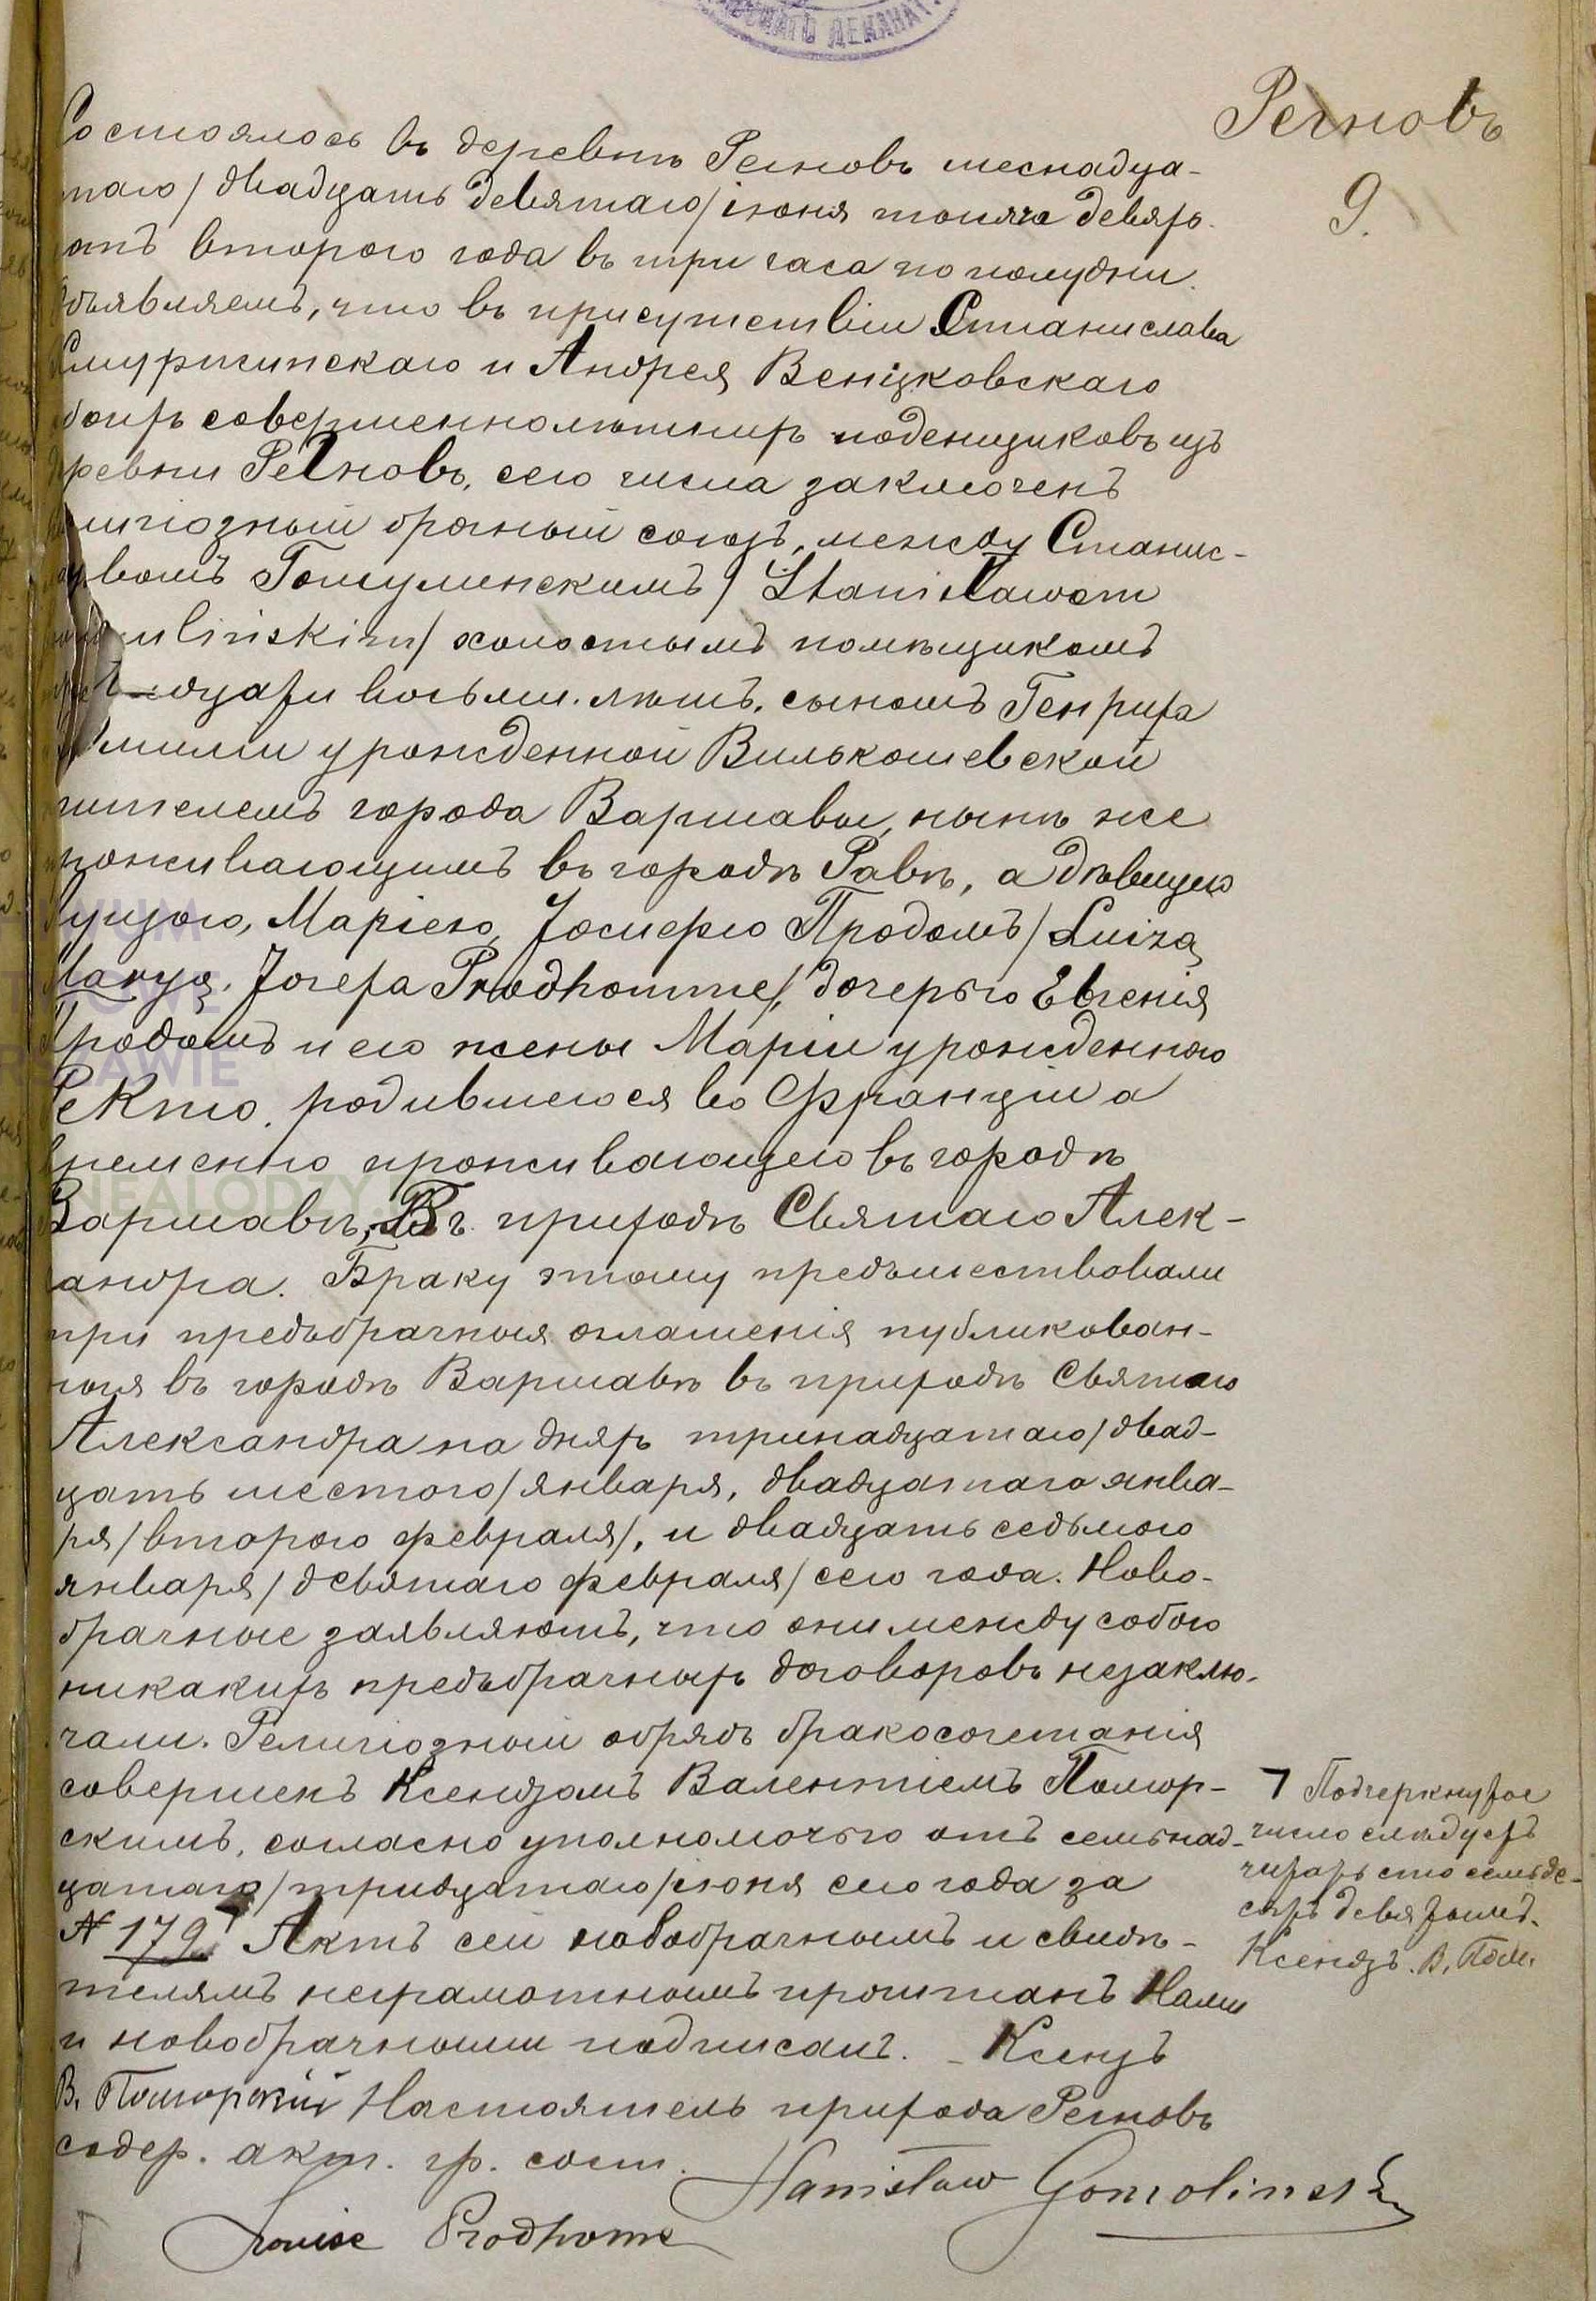 Регновъ
9.
Состоялось въ деревнѣ Регновъ шеснадца-
таго/двадцать девятаго/іюня тысяча девять-
отъ второго года въ три часа по полудни.
Объявляемъ, что въ присутствіи Станислава
и Андрея Венцковскаго
обоихъ совершеннолѣтнихъ поденщиковъ изъ
деревни Регновъ, сего числа заключенъ
религіозный брачный союзъ, между Станис-
лавомъ Гомулинскимъ/Stanisławem
ulińskim/холостымъ помѣщикомъ
дцати восьми лѣтъ, сыномъ Генриха
урожденной Вилькошевской
жителемъ города Варшавы, нынѣ же
проживающимъ въ городѣ Равѣ, а дѣвицею
Луизою, Маріею, Іосифою Продомъ/Luizą
Maryą, Józefa Prodhomme/, дочерью Евгенія
Продомъ и его жены Маріи урожденною
родившеюся во Франціи а
временно проживающею въ городѣ
Варшавѣ, Въ приходѣ Святаго Алек-
сандра. Браку этому предъшествовали
три предъбрачныя оглашенія публикован-
ныя въ городѣ Варшавѣ въ приходѣ Святаго
Александра на дняхъ тринадцатаго/двад-
цать шестого/января, двадцатаго янва-
ря/второго февраля/, и двадцать седьмого
января/девятаго февраля/сего года. Ново-
брачные заявляютъ, что они между собою
никакихъ предъбрачныхъ договоровъ незаклю-
чали. Религіозный обрядъ бракосочетанія
совершенъ Ксендзомъ Валентіемъ Помор-
скимъ, согласно уполномочью отъ семьнад-
цатаго/тридцатаго/іюня сего года за
№ 179 ┐ Актъ сей новобрачнымъ и свидѣ-
телямъ неграмотнымъ прочитанъ Нами
и новобрачными подписанъ. - Ксендзъ
В. Поморскій Настоятель прихода Регновъ
содер. акт. гр. сост.
Stanisław Gomolinski
Louise Prodhome
┐ Подчеркнутое
число слѣдуетъ
читать сто семьде-
сятъ девятымъ.
Ксендзъ. В. Пом.